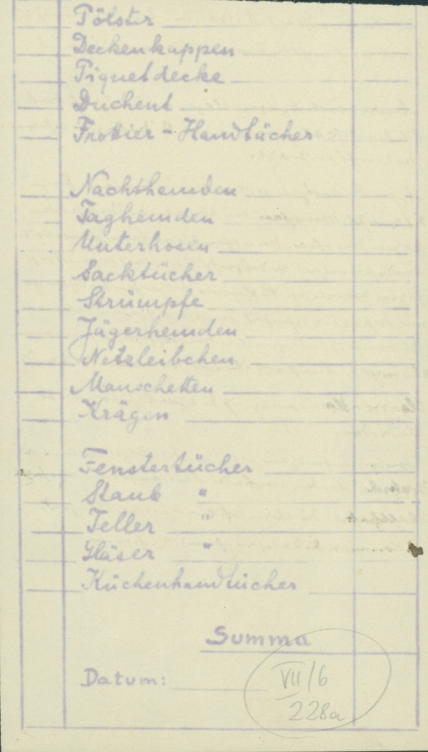 Pölster
Deckenkappen
Piquetdecke
Duchent
Frottier-Handtücher
Nachthemden
Taghemden
Unterhosen
Sacktücher
Strümpfe
Jägerhemden
Netzleibchen
Manschetten
Krägen
Fenstertücher
Staub "
Teller "
Gläser "
Küchenhandtücher
Summa
Datum:
VII/6
228a